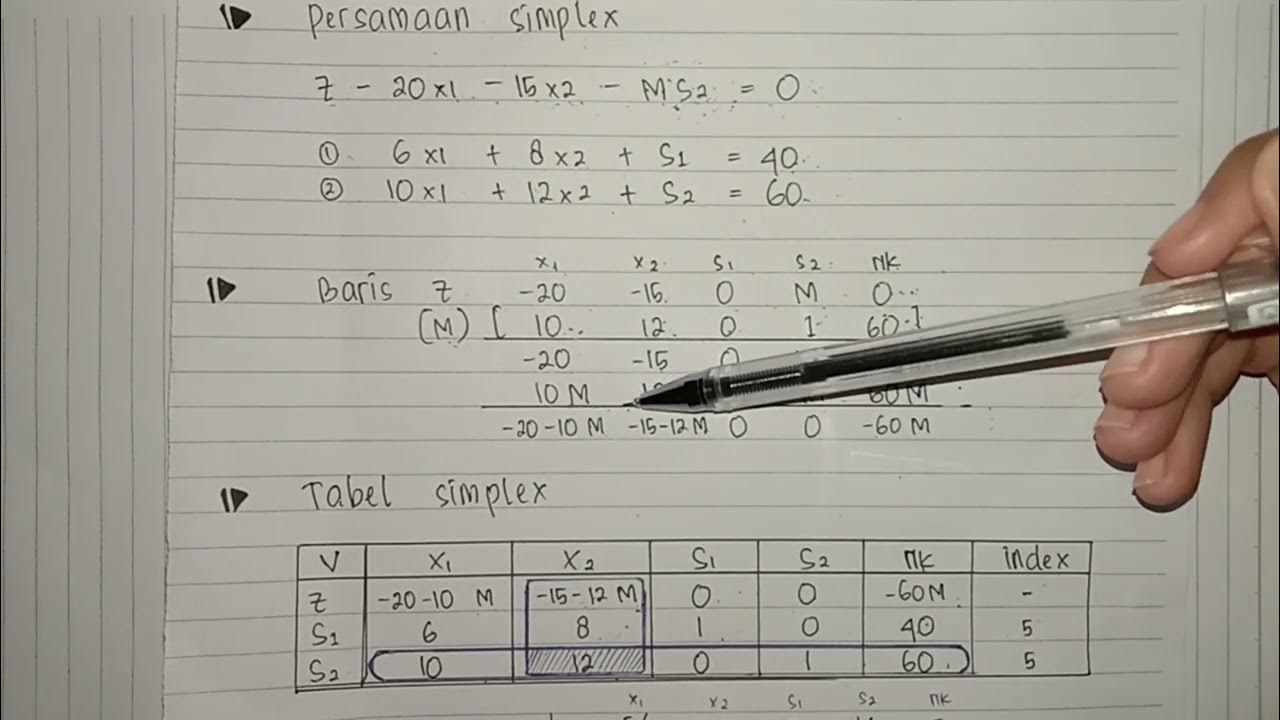 Persamaan simplex
Z - 20x1 - 15x2 - MS2 = 0
① 6x1 + 8x2 + S1 = 40
② 10x1 + 12x2 + S2 = 60
x1 x2 S1 S2 nK
Baris Z -20 -15 0 M 0
(M) [ 10 12 0 1 60 ]
-20 -15 0
10 M 60 M
-20-10 M -15-12 M 0 0 -60 M
Tabel simplex
V X1 X2 S1 S2 nK index
Z -20-10 M -15-12 M 0 0 -60M -
S1 6 8 1 0 40 5
S2 10 12 0 1 60 5
x1 x2 S1 S2 nK